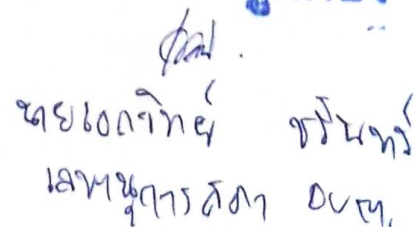 นายเอกวิทย์ ชรินทร์
เลขานุการสภา อบต.